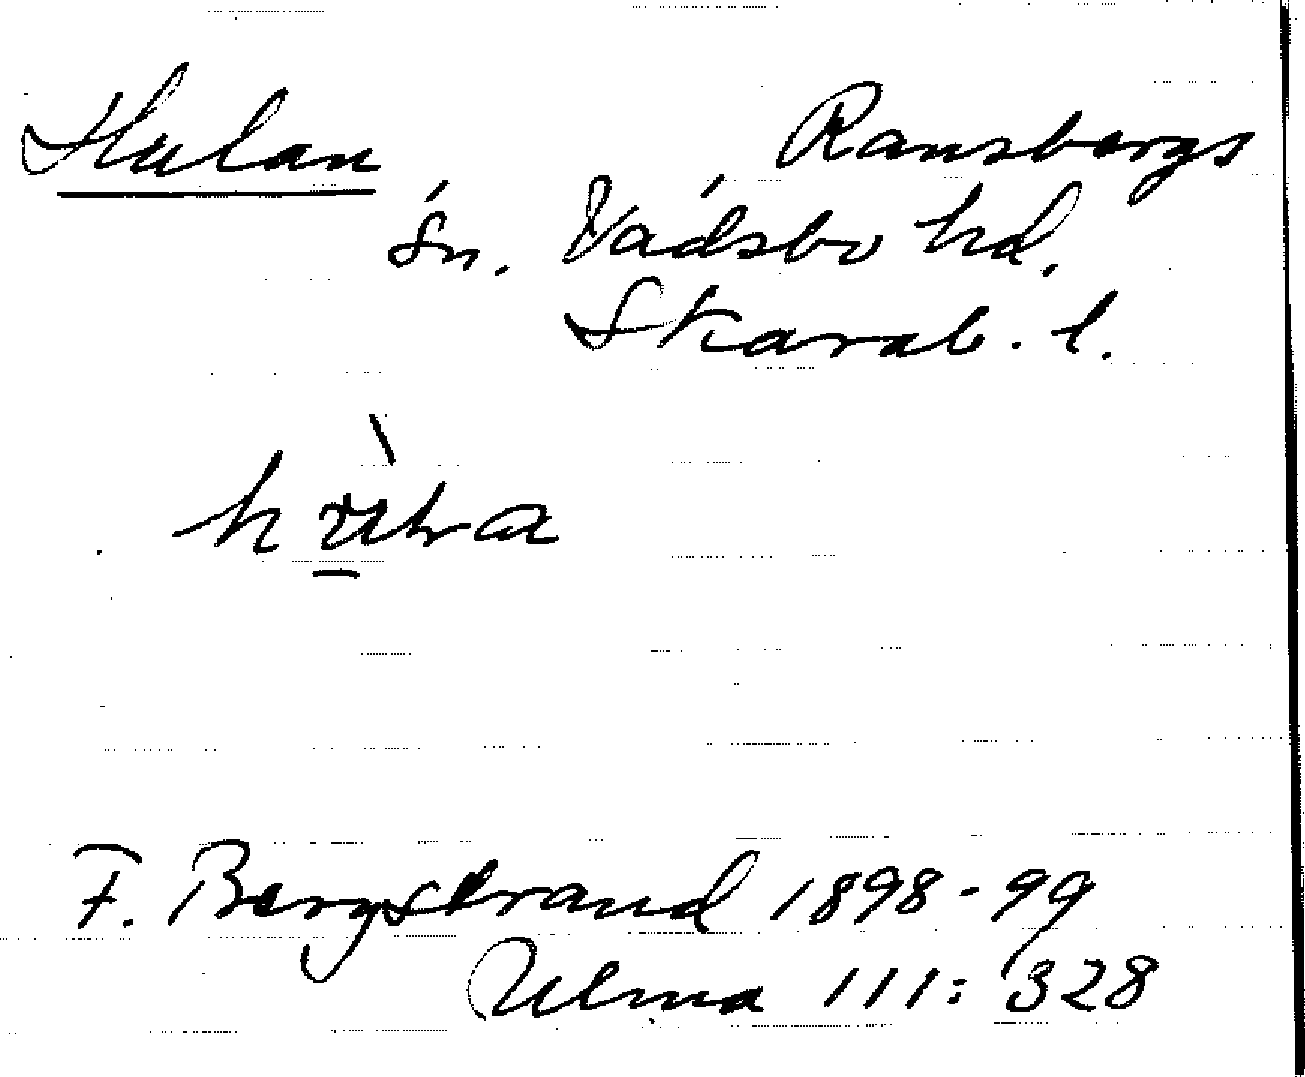 Hulan Ransbergs
sn. Vadsbo hd.
Skarab. l.
F. Bergstrand 1898-99
Ulma 111:328